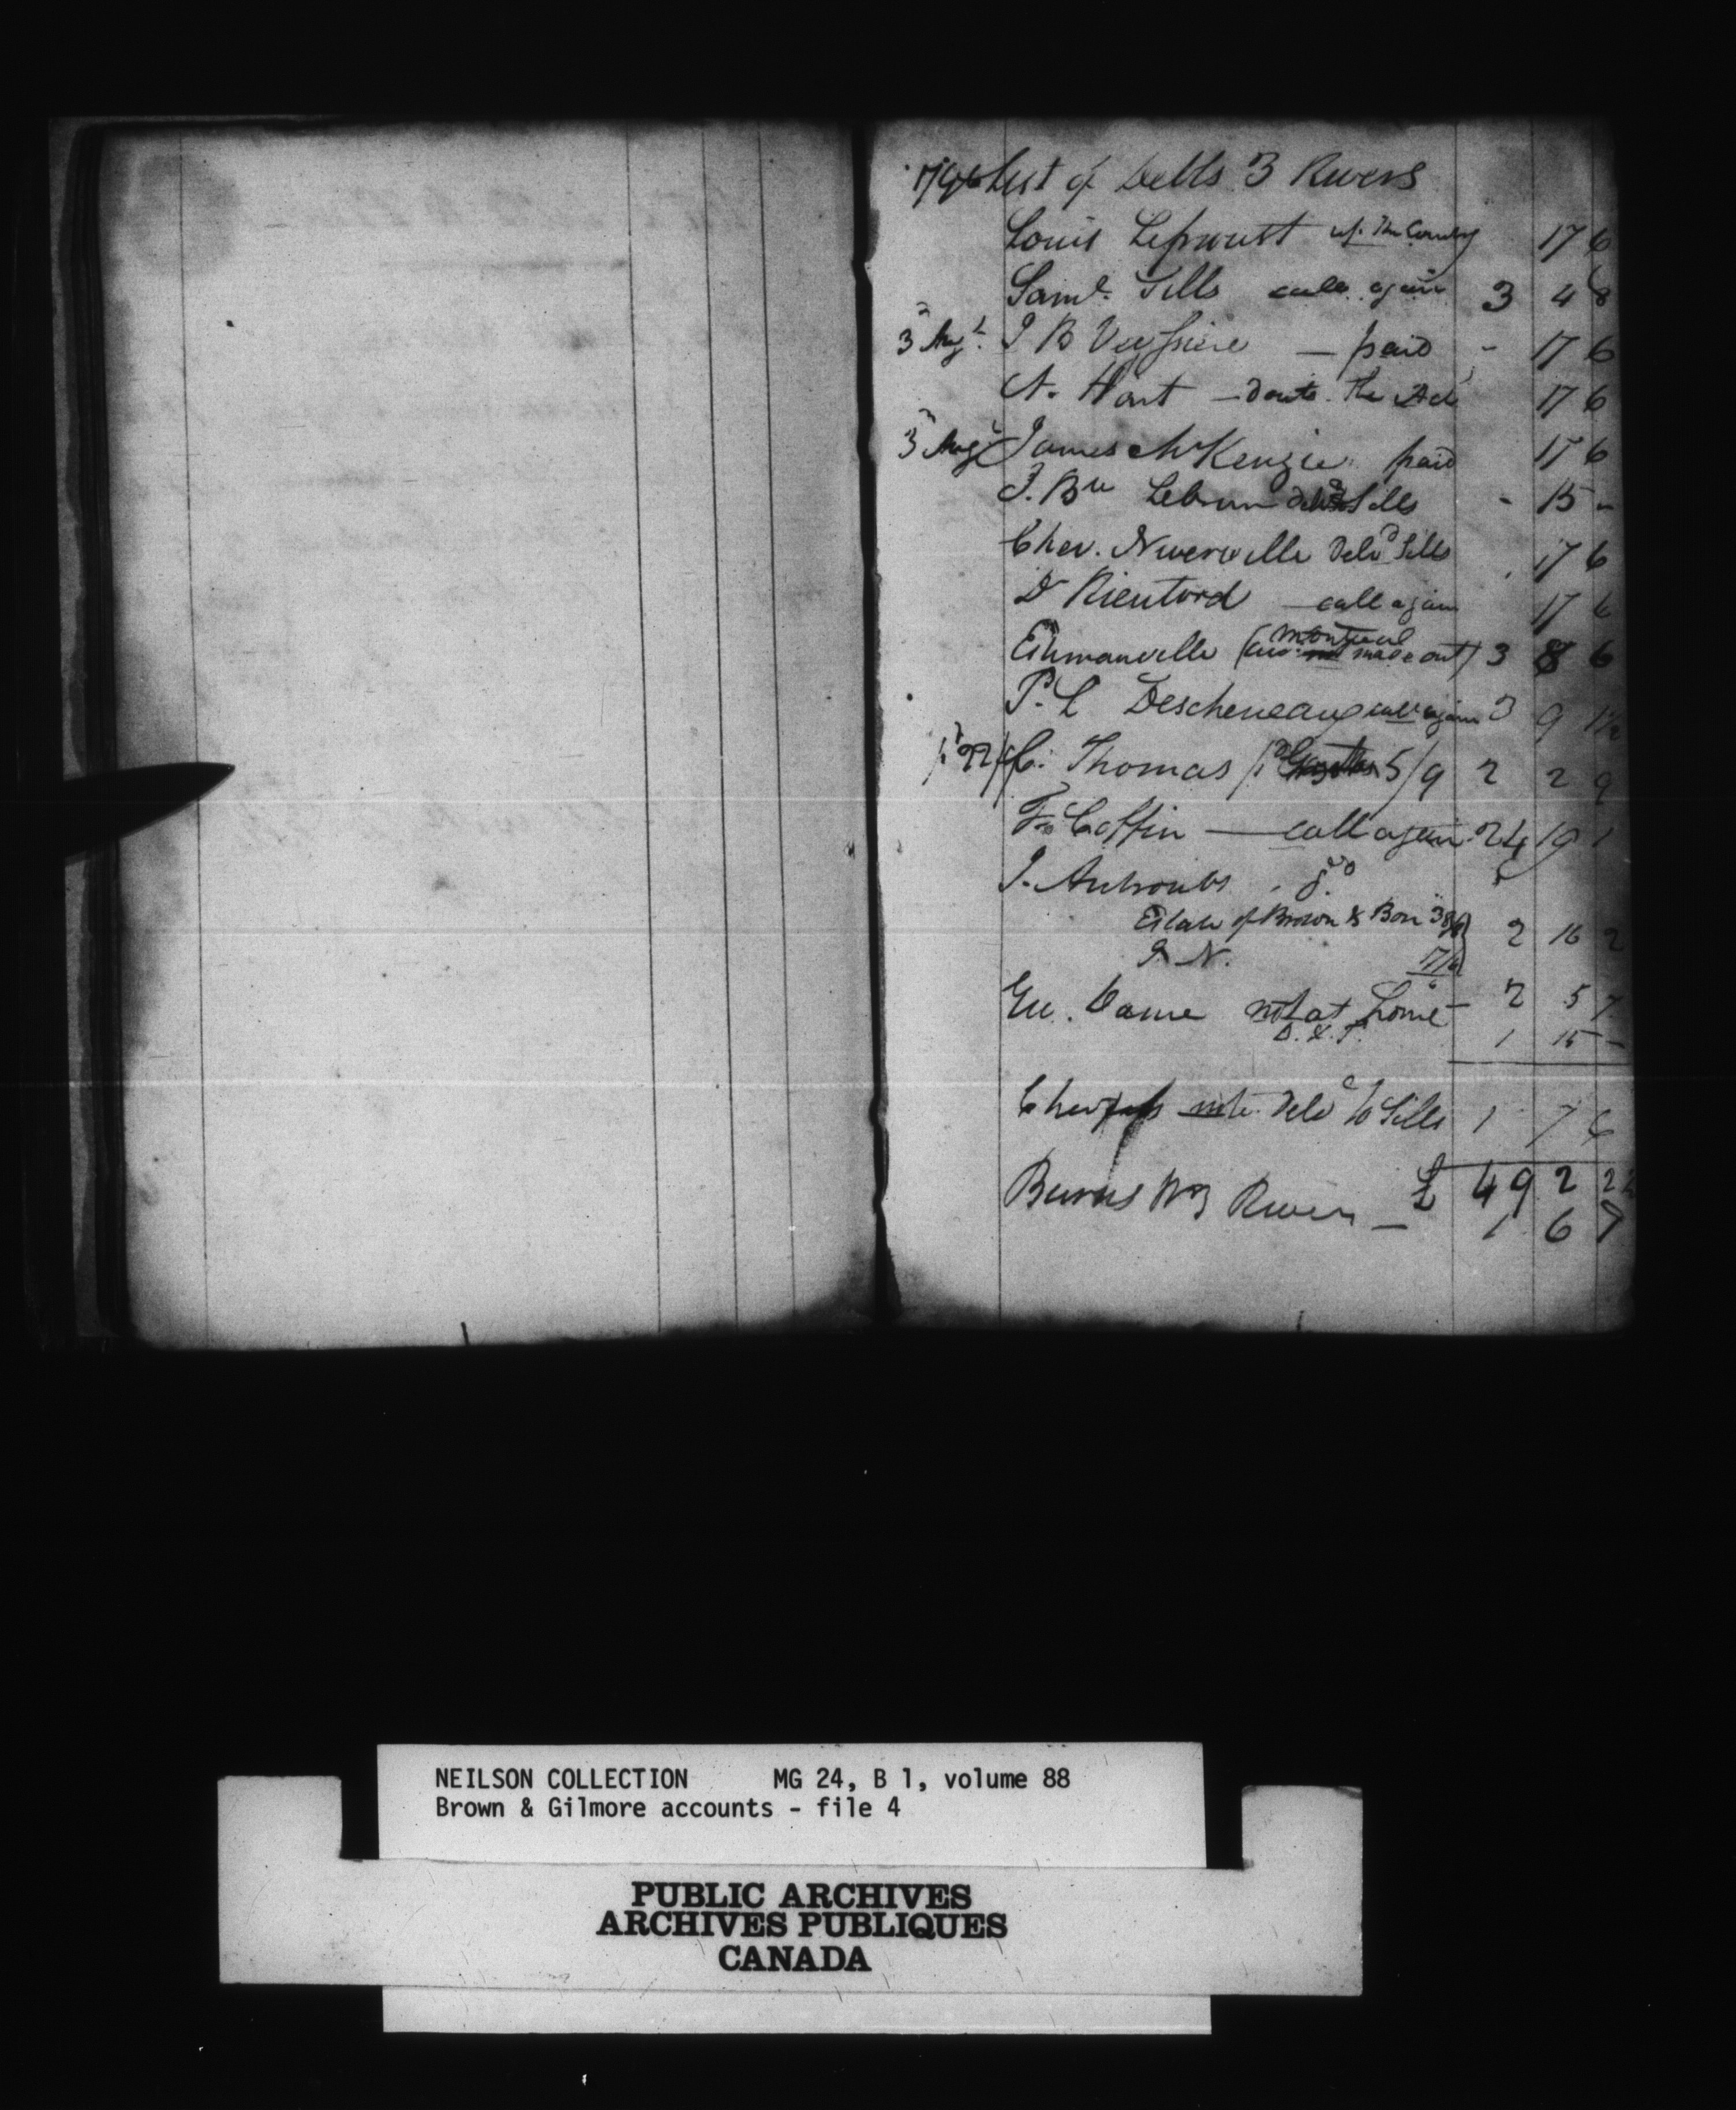 1796 List of Debts 3 Rivers
Louis Leproust up the Country 17 6
Saml. Sills call again 3 4 8
3 Augt. J B Vassiere — paid - 17 6
A. Hart — the 17 6
3 Augt James McKenzie paid 17 6
J. Bte Lebrun deld Sills - 15 -
Chev. Niverville Deld Sills 17 6
Dr Rieutord — call again 17 6
Montreal
Ehmanville (acc. not made out) 3 8 6
P. L Descheneaux call again 3 9 1½
C. Thomas 5/9 2 2 9
Fr. Coffin — call again 24 19 1
J. Antrobus - do
Estate of Brown & Bon
J. N. 17/6 2 16 2
not at home — 2 5 7
D. & T. 1 15 —
deld to Sills 1 7 6
£ 49 2
Burns River — 1 6 9
NEILSON COLLECTION MG 24, B 1, volume 88
Brown & Gilmore accounts - file 4
PUBLIC ARCHIVES
ARCHIVES PUBLIQUES
CANADA